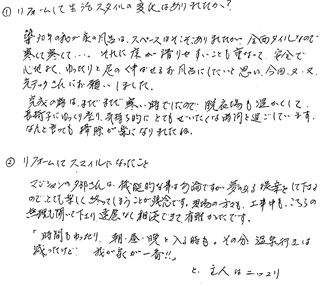 ① リフォームして生活スタイルの変化はありましたか？
築10年の我が家のお風呂は、スペースはそこそこありましたが 全面タイルなので
寒くて寒くて… それに床が滑りやすいことも重なって、安全で
心地よく、ゆったりと足のくすばせるお風呂にしたいと思い、今回、
さんにお願いしました。
完成の時は、まだまだ寒い時でしたので、脱衣場も温かくして、
長椅子にゆっくり座り、気持ち的にとてもぜいたくな時間を過ごしています。
なんと言っても 掃除が楽になりましたね。
② リフォームして スマイルになったこと
マンションの さんは、機能的な事は勿論ですが 夢のある提案をして下さる
のでとても楽しく 終ってしまうことが残念です。現場の方も、工事中も、こちらの
無理も聞いて下さり 遠慮なく相談できて有難かったです。
「時間もゆったり、朝・昼・晩と入る時も。その分、温泉行きは
減ったけど 我が家が一番!!」
と、主人はニッコリ